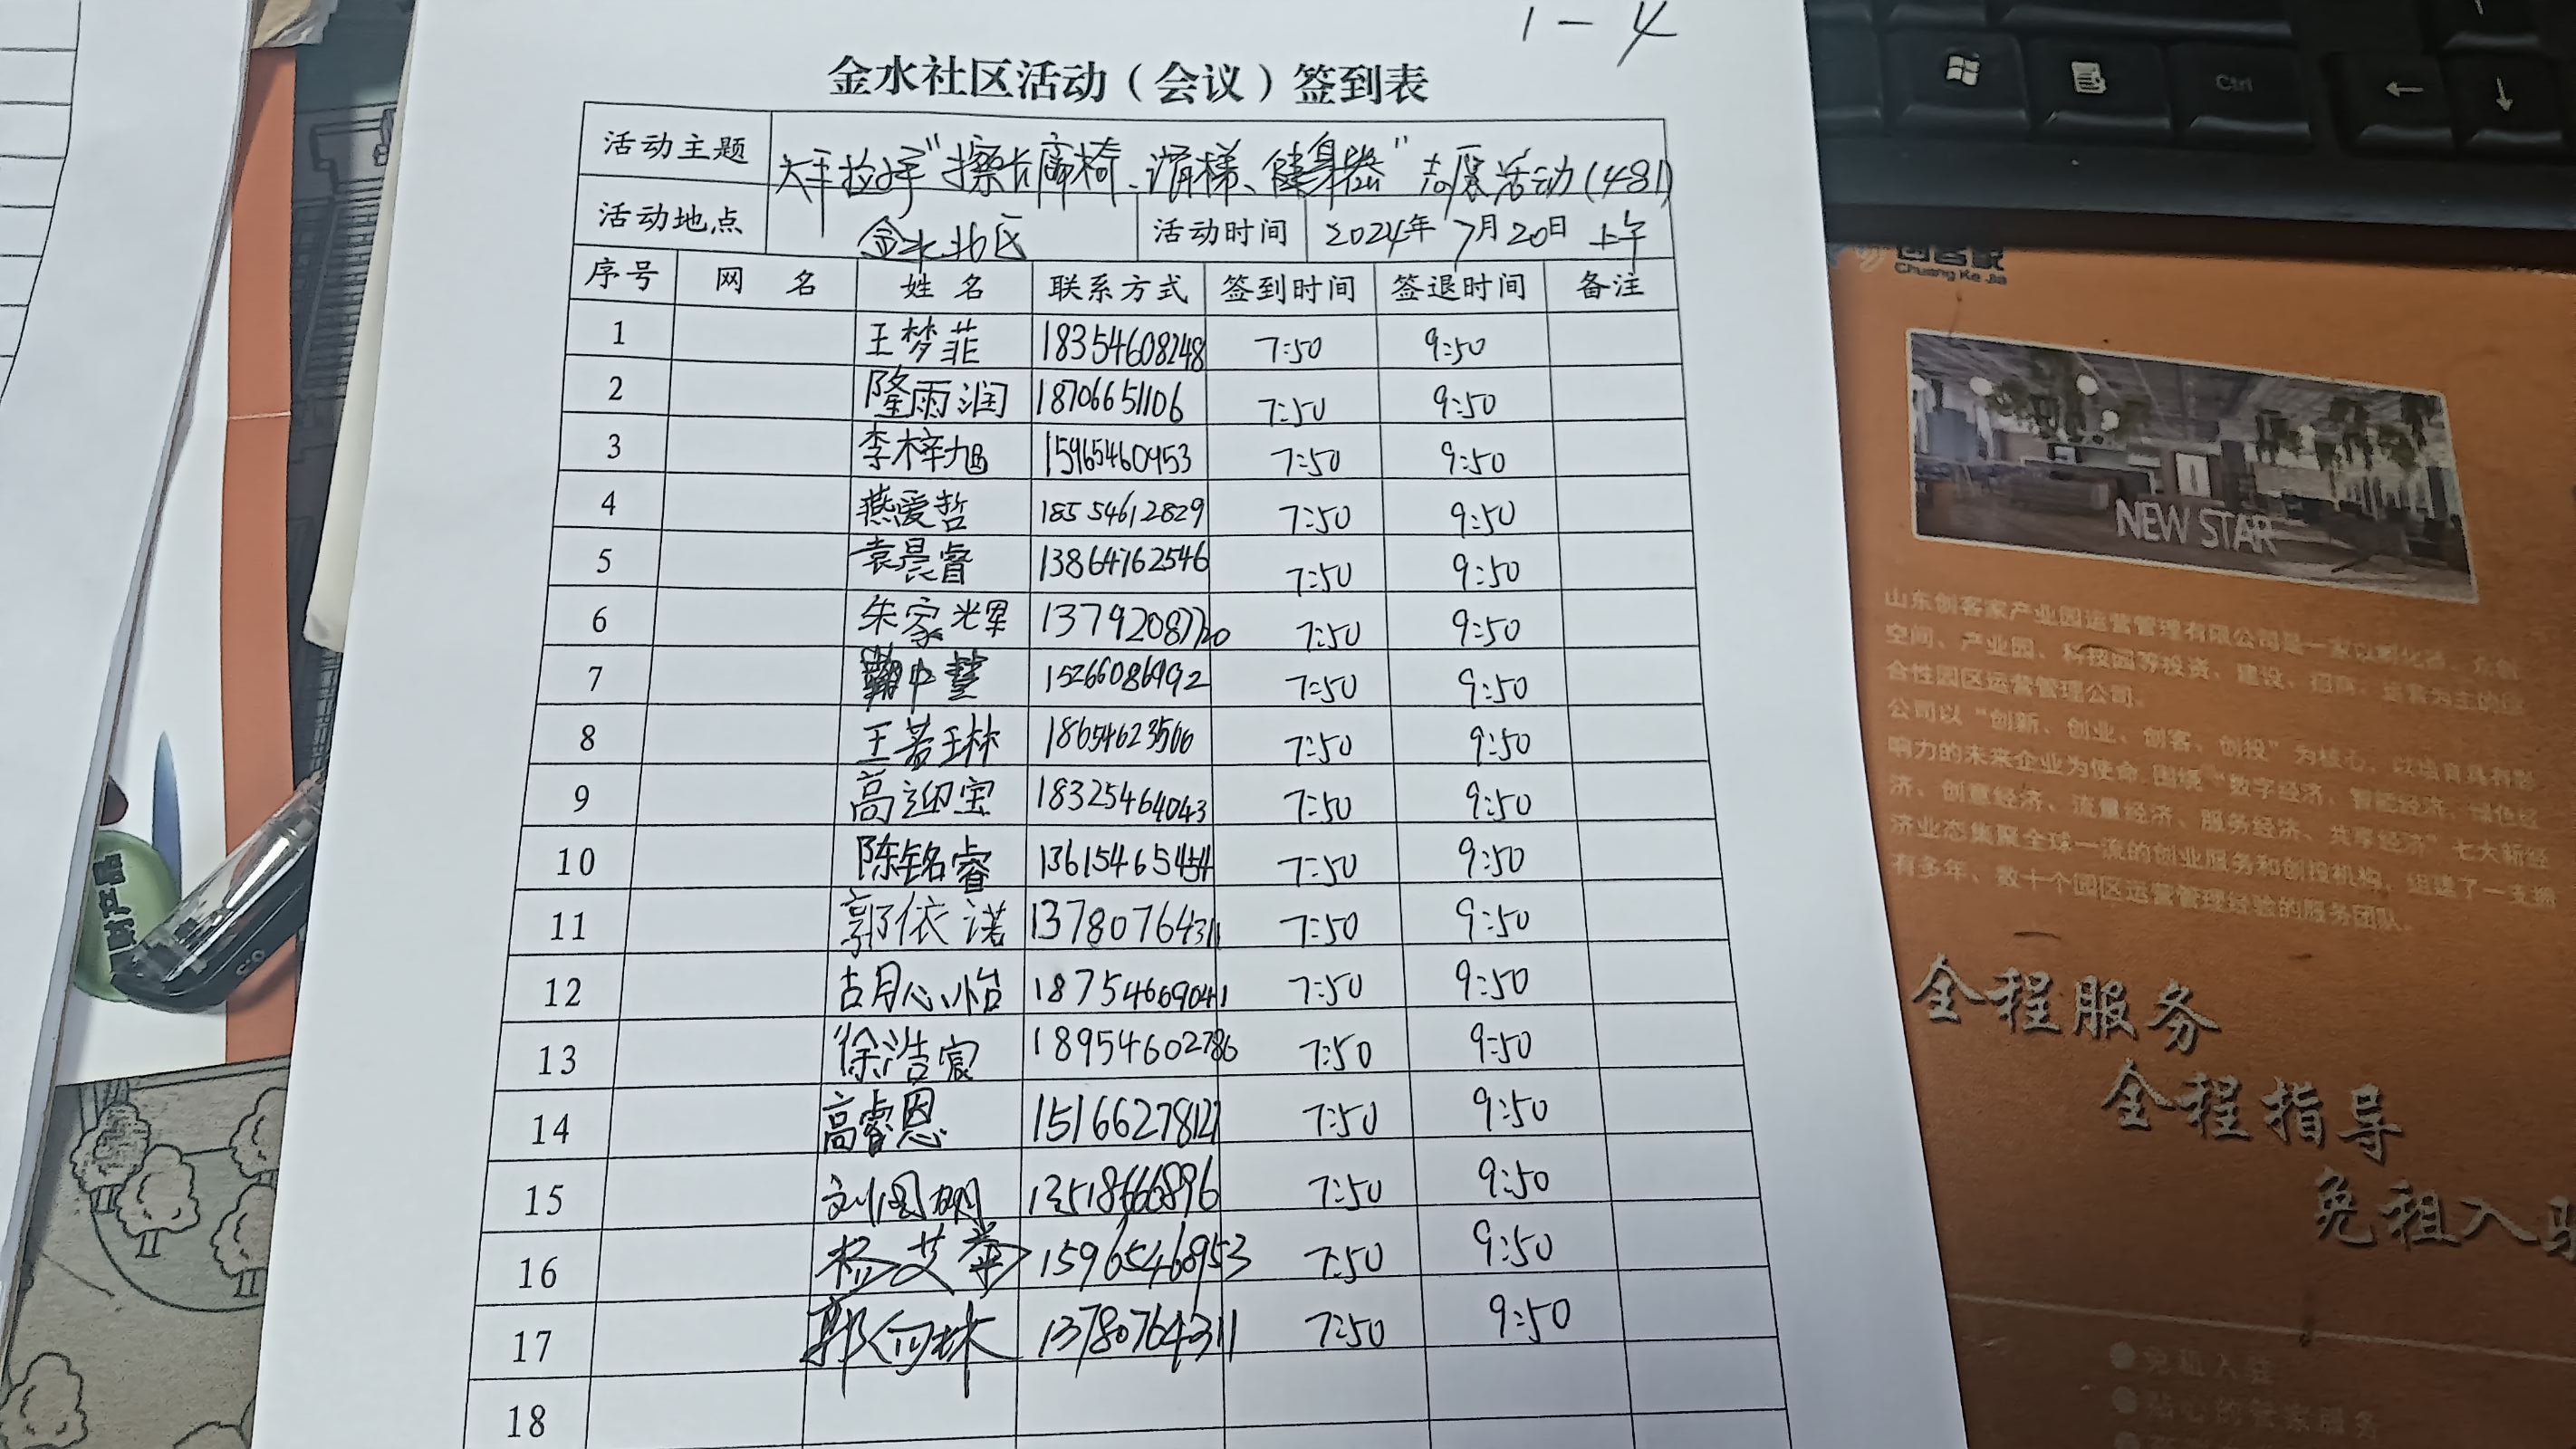 1-4
金水社区活动（会议）签到表
活动主题 大手拉小手"擦长廊椅、滑梯、健身器"志愿活动(481)
活动地点 金水北区 活动时间 2024年7月20日 上午
序号 网 名 姓 名 联系方式 签到时间 签退时间 备注
1 王梦菲 18354608248 7:50 9:50
2 隆雨润 18706651106 7:50 9:50
3 李梓旭 15965460953 7:50 9:50
4 燕爱哲 18554612829 7:50 9:50
5 袁晨睿 13864762546 7:50 9:50
6 朱家辉 13792087720 7:50 9:50
7 中慧 15266086992 7:50 9:50
8 王若琳 18654623566 7:50 9:50
9 高迎宝 18325464043 7:50 9:50
10 陈铭睿 13615465454 7:50 9:50
11 郭依诺 13780764311 7:50 9:50
12 胡心怡 18754669041 7:50 9:50
13 徐浩宸 18954602786 7:50 9:50
14 高睿恩 15166278127 7:50 9:50
15 刘国明 13518666896 7:50 9:50
16 杨艾华 15965468953 7:50 9:50
17 郭向林 13780764311 7:50 9:50
18
Ctrl
Chuang Ke Jia
NEW STAR
山东创客家产业园运营管理有限公司是一家以孵化器、众创
空间、产业园、科技园等投资、建设、招商、运营为主的综
合性园区运营管理公司。
公司以"创新、创业、创客、创投"为核心，以培育具有影
响力的未来企业为使命，围绕"数字经济、智能经济、绿色经
济、创意经济、流量经济、服务经济、共享经济"七大新经
济业态集聚全球一流的创业服务和创投机构，组建了一支拥
有多年、数十个园区运营管理经验的服务团队。
全程服务
全程指导
免租入驻
免租入驻
贴心的管家服务